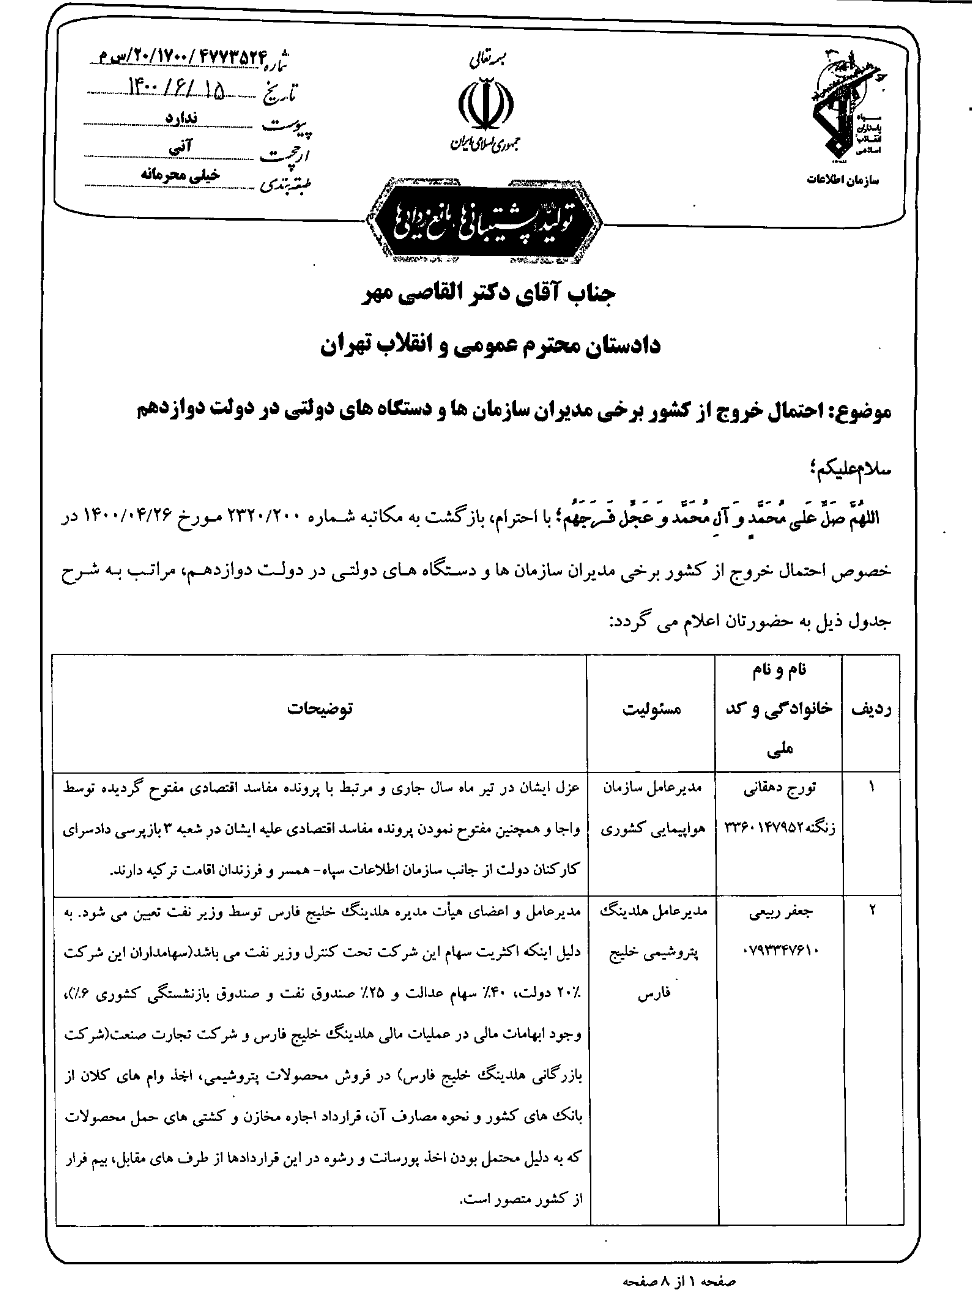 بسمه تعالی
جمهوری اسلامی ایران
شماره ۲۰/۱۷۰۰/۴۷۷۳۵۲۴/س م
تاریخ ۱۴۰۰/۶/۱۵
پیوست ندارد
ارجحیت آنی
طبقه بندی خیلی محرمانه
سپاه
پاسداران
انقلاب
اسلامی
سازمان اطلاعات
تولید؛ پشتیبانی‌ها، مانع‌زدایی‌ها
جناب آقای دکتر القاصی مهر
دادستان محترم عمومی و انقلاب تهران
موضوع: احتمال خروج از کشور برخی مدیران سازمان ها و دستگاه های دولتی در دولت دوازدهم
سلام‌علیکم؛
اللهُمَّ صَلِّ عَلی مُحَمَّدٍ وَ آلِ مُحَمَّد وَ عَجِّل فَرَجَهُم؛ با احترام، بازگشت به مکاتبه شماره ۲۳۲۰/۲۰۰ مورخ ۱۴۰۰/۰۴/۲۶ در
خصوص احتمال خروج از کشور برخی مدیران سازمان ها و دستگاه های دولتی در دولت دوازدهم، مراتب به شرح
جدول ذیل به حضورتان اعلام می گردد:
ردیف
نام و نام
خانوادگی و کد
ملی
مسئولیت
توضیحات
۱
تورج دهقانی
زنگنه ۳۳۶۰۱۴۷۹۵۲
مدیرعامل سازمان
هواپیمایی کشوری
عزل ایشان در تیر ماه سال جاری و مرتبط با پرونده مفاسد اقتصادی مفتوح گردیده توسط
واجا و همچنین مفتوح نمودن پرونده مفاسد اقتصادی علیه ایشان در شعبه ۳ بازپرسی دادسرای
کارکنان دولت از جانب سازمان اطلاعات سپاه- همسر و فرزندان اقامت ترکیه دارند.
۲
جعفر ربیعی
۰۷۹۳۳۴۷۶۱۰
مدیرعامل هلدینگ
پتروشیمی خلیج
فارس
مدیرعامل و اعضای هیأت مدیره هلدینگ خلیج فارس توسط وزیر نفت تعیین می شود. به
دلیل اینکه اکثریت سهام این شرکت تحت کنترل وزیر نفت می باشد(سهامداران این شرکت
۲۰٪ دولت، ۴۰٪ سهام عدالت و ۲۵٪ صندوق نفت و صندوق بازنشستگی کشوری ۶٪)،
وجود ابهامات مالی در عملیات مالی هلدینگ خلیج فارس و شرکت تجارت صنعت(شرکت
بازرگانی هلدینگ خلیج فارس) در فروش محصولات پتروشیمی، اخذ وام های کلان از
بانک های کشور و نحوه مصارف آن، قرارداد اجاره مخازن و کشتی های حمل محصولات
که به دلیل محتمل بودن اخذ پورسانت و رشوه در این قراردادها از طرف های مقابل، بیم فرار
از کشور متصور است.
صفحه ۱ از ۸ صفحه